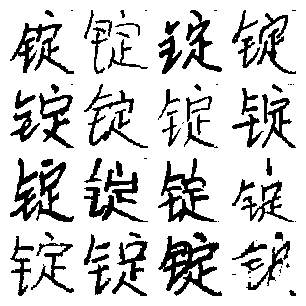 锭锭锭锭
锭锭锭锭
锭锭锭锭
锭锭锭锭